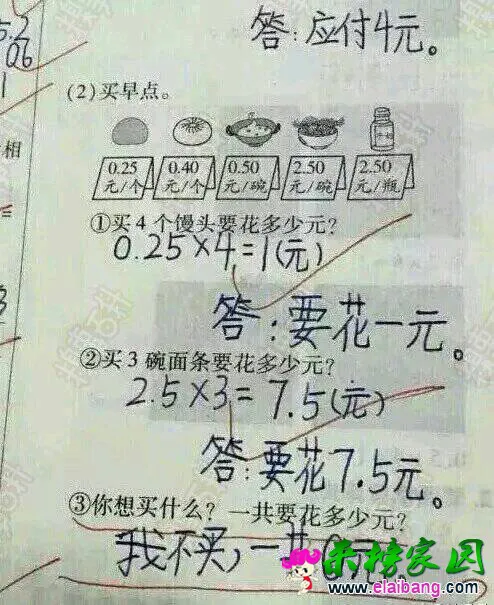 5.2
06
1
答:应付4元。
(2)买早点。
相
0.25 0.40 0.50 2.50 2.50
元/个 元/个 元/碗 元/碗 元/瓶
①买4个馒头要花多少元?
0.25×4=1(元)
答:要花一元。
②买3碗面条要花多少元?
2.5×3=7.5(元)
答:要花7.5元。
③你想买什么?一共要花多少元?
我不买,一共0元
www.elaibang.com